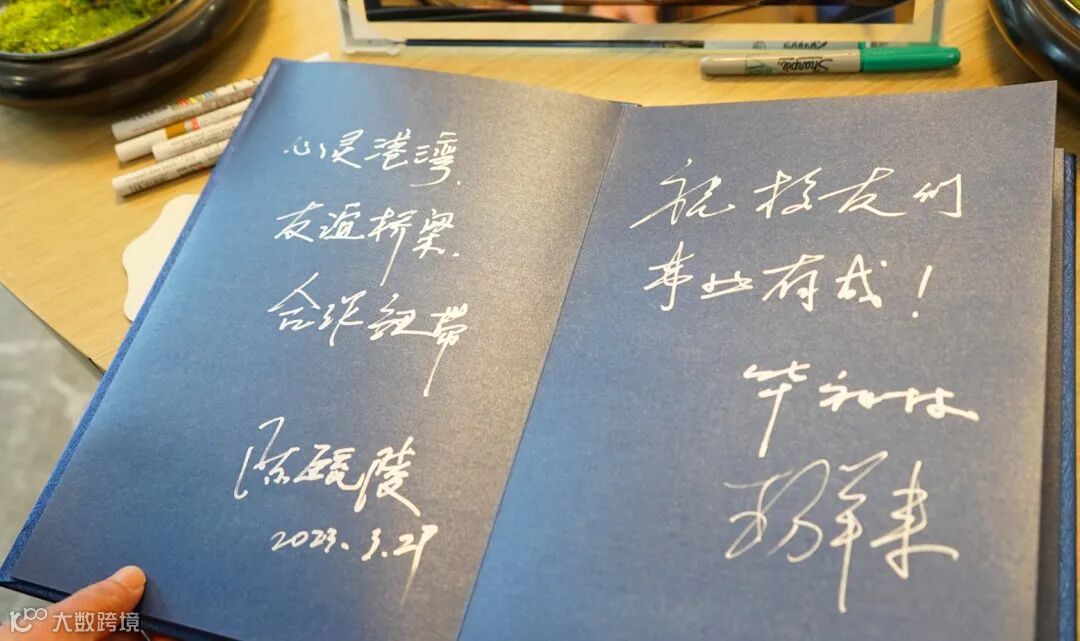 心灵港湾.
友谊桥梁.
合作纽带
2023.3.27
祝校友们
事业有成!
Sharpie
大数跨境